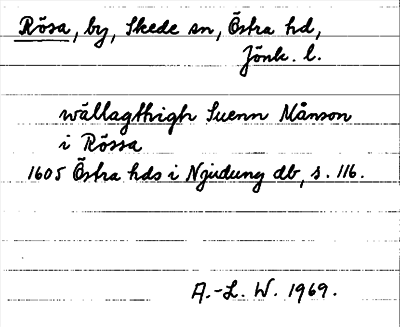 Rösa, by, Skede sn, Östra hd,
Jönk. l.
wällagthigh Suenn Månson
i Rössa
1605 Östra hds i Njudung db, s. 116.
A.-L. W. 1969.